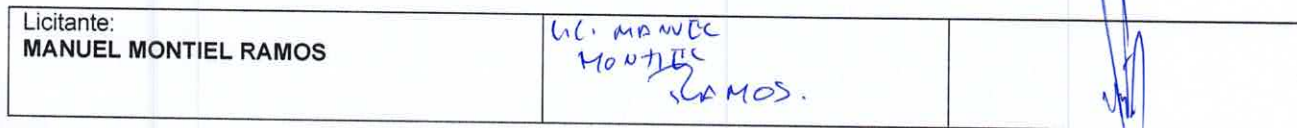 Licitante:
MANUEL MONTIEL RAMOS
LIC. MANUEL
MONTIEL
RAMOS.